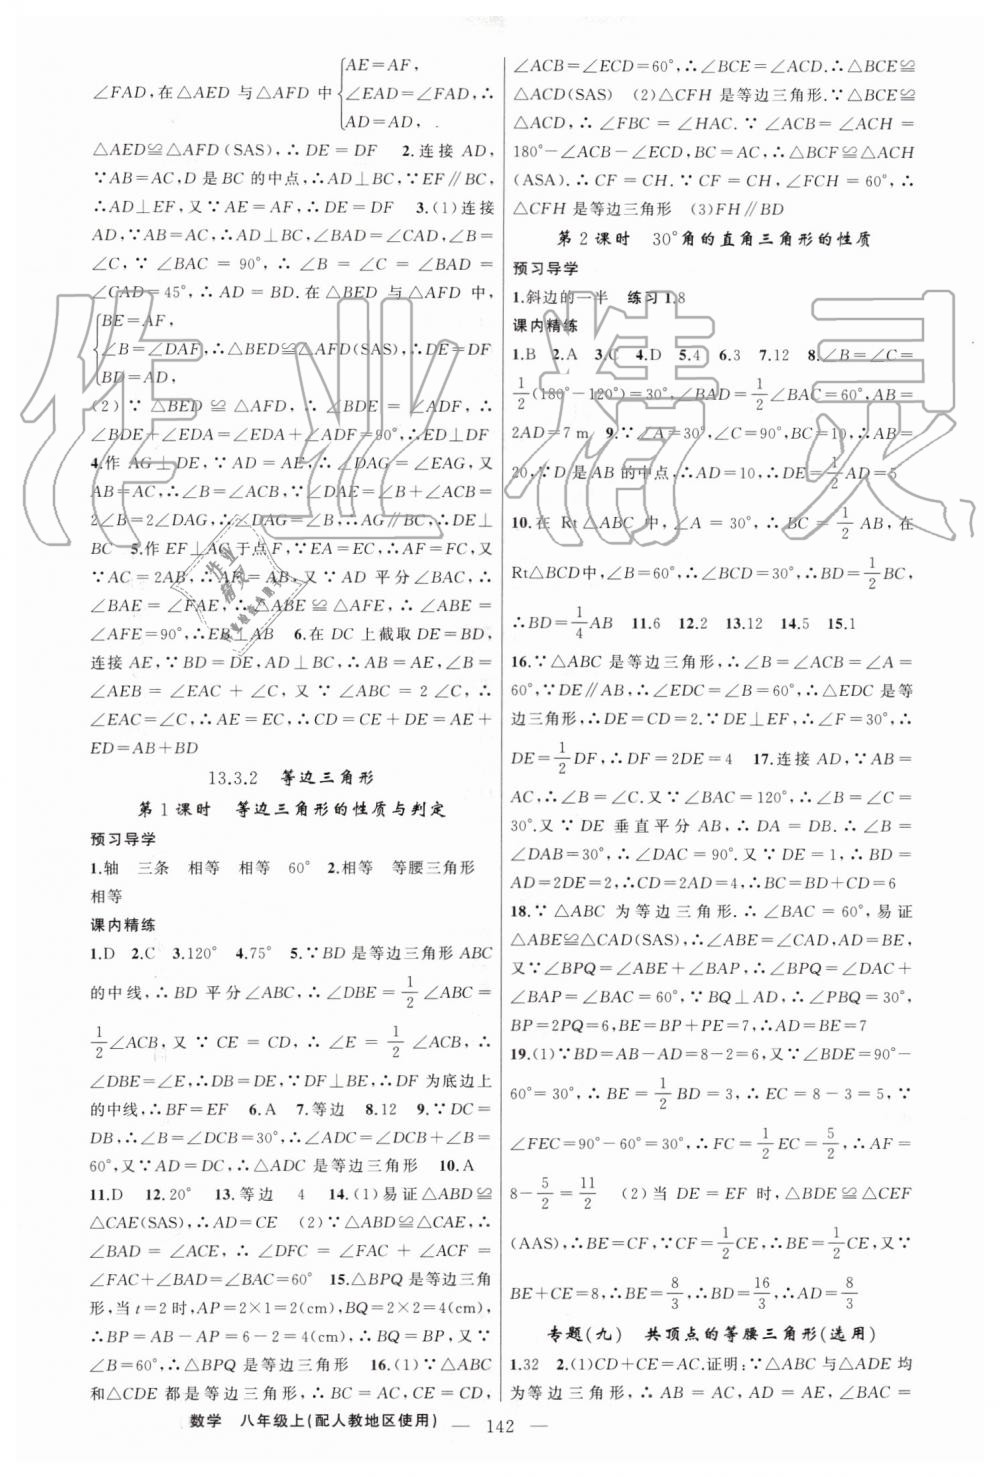 AE=AF,
∠FAD,在△AED 与△AFD 中 ∠EAD=∠FAD,∴
AD=AD,
△AED≌△AFD(SAS),∴DE=DF 2.连接 AD,
∵AB=AC,D 是 BC 的中点,∴AD⊥BC,∵EF∥BC,
∴AD⊥EF,又∵AE=AF,∴DE=DF 3.(1)连接
AD,∵AB=AC,∴AD⊥BC,∠BAD=∠CAD,
∵∠BAC=90°,∴∠B=∠C=45°,∴∠BAD=
∠CAD=45°,∴AD=BD.在△AED 与△AFD 中,
BE=AF,
∠B=∠DAF,∴△BED≌△AFD(SAS),∴DE=DF
BD=AD,
(2)∵△BED≌△AFD,∴∠BDE=∠ADF,∴
∠BDE+∠EDA=∠EDA+∠ADF=90°,∴ED⊥DF
4.作 AG⊥DE,∵AD=AE,∴∠DAG=∠EAG,又
AB=AC,∴∠B=∠ACB,∴∠DAE=∠B+∠ACB=
2∠B=2∠DAG,∴∠DAG=∠B,∴AG∥BC,∴DE⊥
BC 5.作 EF⊥AC 于点 F,∵EA=EC,∴AF=FC,又
∵AC=2AB,∴AF=AB,又∵AD 平分∠BAC,∴
∠BAE=∠FAE,∴△ABE≌△AFE,∴∠ABE=
∠AFE=90°,∴EB⊥AB 6.在 DC 上截取 DE=BD,
连接 AE,∵BD=DE,AD⊥BC,∴AB=AE,∴∠B=
∠AEB=∠EAC+∠C,又∵∠ABC=2∠C,∴
∠EAC=∠C,∴AE=EC,∴CD=CE+DE=AE+
ED=AB+BD
13.3.2 等边三角形
第 1 课时 等边三角形的性质与判定
预习导学
1.轴 三条 相等 相等 60° 2.相等 等腰三角形
相等
课内精练
1.D 2.C 3.120° 4.75° 5.∵BD 是等边三角形 ABC
的中线,∴BD 平分∠ABC,∴∠DBE=1/2∠ABC=
1/2∠ACB,又∵CE=CD,∴∠E=1/2∠ACB,∴
∠DBE=∠E,∴DB=DE,∵DF⊥BE,∴DF 为底边上
的中线,∴BF=EF 6.A 7.等边 8.12 9.∵DC=
DB,∴∠B=∠DCB=30°,∴∠ADC=∠DCB+∠B=
60°,又∵AD=DC,∴△ADC 是等边三角形 10.A
11.D 12.20° 13.等边 4 14.(1)易证△ABD≌
△CAE(SAS),∴AD=CE (2)∵△ABD≌△CAE,∴
∠BAD=∠ACE,∴∠DFC=∠FAC+∠ACF=
∠FAC+∠BAD=∠BAC=60° 15.△BPQ 是等边三角
形,当 t=2 时,AP=2×1=2(cm),BQ=2×2=4(cm),
∴BP=AB-AP=6-2=4(cm),∴BQ=BP,又∵
∠B=60°,∴△BPQ 是等边三角形 16.(1)∵△ABC
和△CDE 都是等边三角形,∴BC=AC,CE=CD,
∠ACB=∠ECD=60°,∴∠BCE=∠ACD.∴△BCE≌
△ACD(SAS) (2)△CFH 是等边三角形.∵△BCE≌
△ACD,∴∠FBC=∠HAC.∵∠ACB=∠ACH=
180°-∠ACB-∠ECD,BC=AC,∴△BCF≌△ACH
(ASA).∴CF=CH.∵CF=CH,∠FCH=60°,∴
△CFH 是等边三角形 (3)FH∥BD
第 2 课时 30°角的直角三角形的性质
预习导学
1.斜边的一半 练习 1.8
课内精练
1.B 2.A 3.C 4.D 5.4 6.3 7.12 8.∠B=∠C=
1/2(180°-120°)=30°,∠BAD=1/2∠BAC=60°,AB=
2AD=7 m 9.∵∠A=30°,∠C=90°,BC=10,∴AB=
20,∵D 是 AB 的中点,∴AD=10,∴DE=1/2AD=5
10.在 Rt△ABC 中,∠A=30°,∴BC=1/2AB,在
Rt△BCD中,∠B=60°,∴∠BCD=30°,∴BD=1/2BC,
∴BD=1/4AB 11.6 12.2 13.12 14.5 15.1
16.∵△ABC 是等边三角形,∴∠B=∠ACB=∠A=
60°,∵DE∥AB,∴∠EDC=∠B=60°,∴△EDC 是等
边三角形,∴DE=CD=2.∵DE⊥EF,∴∠F=30°,∴
DE=1/2DF,∴DF=2DE=4 17.连接 AD,∵AB=
AC,∴∠B=∠C.又∵∠BAC=120°,∴∠B=∠C=
30°.又∵DE 垂直平分 AB,∴DA=DB.∴∠B=
∠DAB=30°,∴∠DAC=90°.又∵∠C=30°,∴BD=
AD=2DE=2,∴CD=2AD=4,∴BC=BD+CD=6
18.∵△ABC 为等边三角形.∴∠BAC=60°,易证
△ABE≌△CAD(SAS),∴∠ABE=∠CAD,AD=BE,
又∵∠BPQ=∠ABE+∠BAP,∴∠BPQ=∠DAC+
∠BAP=∠BAC=60°,∵BQ⊥AD,∴∠PBQ=30°,
BP=2PQ=6,BE=BP+PE=7,∴AD=BE=7
19.(1)∵BD=AB-AD=8-2=6,又∵∠BDE=90°-
60°=30°,∴BE=1/2BD=3,∴EC=8-3=5,∵
∠FEC=90°-60°=30°,∴FC=1/2EC=5/2,∴AF=
8-5/2=11/2 (2)当 DE=EF 时,△BDE≌△CEF
(AAS),∴BE=CF,∵CF=1/2CE,∴BE=1/2CE,又∵
BE+CE=8,∴BE=8/3,∴BD=16/3,∴AD=8/3
专题(九) 共顶点的等腰三角形(选用)
1.32 2.(1)CD+CE=AC.证明:∵△ABC 与△ADE 均
为等边三角形,∴AB=AC=BC,AD=AE,∠BAC=
数学 八年级上(配人教地区使用) — 142 —
作业精灵